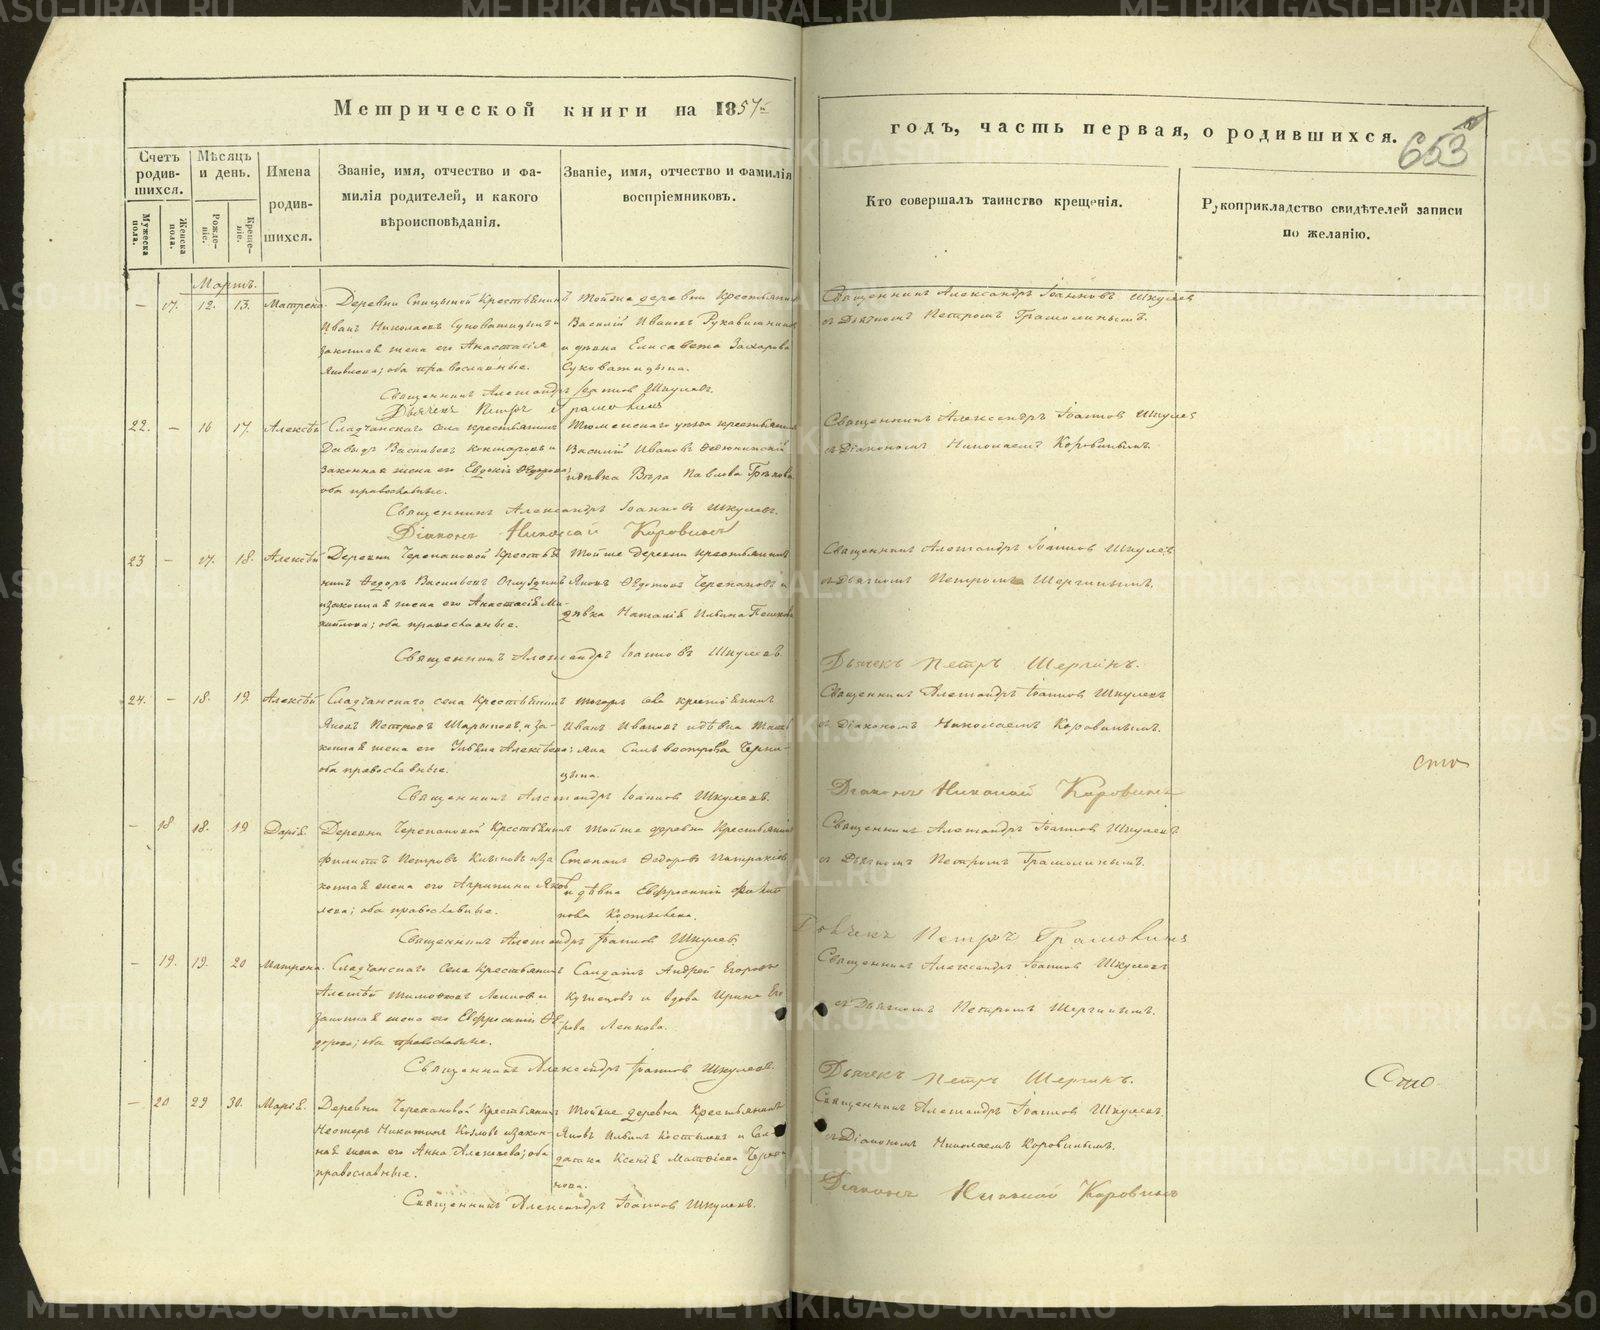 Метрической книги на 1857й
годъ, часть первая, о родившихся.
653
Счетъ родив-шихся.
Мужеска пола.
Женска пола.
Мѣсяцъ и день.
Рожде-ніе.
Креще-ніе.
Имена родив-шихся.
Званіе, имя, отчество и фа-
милія родителей, и какого
вѣроисповѣданія.
Званіе, имя, отчество и фамилія
воспріемниковъ.
Кто совершалъ таинство крещенія.
Рукоприкладство свидѣтелей записи
по желанію.
Мартъ.
— 17. 12. 13. Матрена.
Деревни Крестьянинъ
Иванъ Николаевъ и
законная жена его Анастасія
Яковлева; оба православные.
Тойже деревни Крестьянинъ
Василій Ивановъ Рукавишниковъ
и дѣвка Елисавета Захарова
Священникъ Александръ Іоанновъ Шкулевъ
съ Дьячкомъ Петромъ Грамолинымъ.
Священникъ Александръ Іоанновъ Шкулевъ.
Дьячекъ Петръ Грамолинъ
22. — 16 17. Алексѣй
Сладчанскаго села крестьянинъ
Давыдъ Васильевъ и
законная жена его Евдокія Ѳедорова;
оба православные.
Тюменскаго уѣзда крестьянинъ
Василій Ивановъ
и дѣвка Вѣра Павлова
Священникъ Александръ Іоанновъ Шкулев
съ Діакономъ Николаемъ Коровинымъ.
Священникъ Александръ Іоанновъ Шкулевъ.
Діаконъ Николай Коровинъ
23 — 17. 18. Алексѣй
Деревни Черепановой Крестья-
нинъ Ѳедоръ Васильевъ
и законная жена его Анастасія Ми-
хайлова; оба православные.
Тойже деревни крестьянинъ
Яковъ Ѳедотовъ Черепановъ и
дѣвка Наталія Ильина
Священникъ Александръ Іоанновъ Шкулевъ
съ Дьячкомъ Петромъ Шергинымъ.
Священникъ Александръ Іоанновъ Шкулевъ
Дьячекъ Петръ Шергинъ.
24. — 18. 19. Алексѣй
Сладчанскаго села Крестьянинъ
Яковъ Петровъ Шарыповъ, и за-
конная жена его Улѣяна Алексѣева;
оба православные.
тогожъ села крестьянинъ
Иванъ Ивановъ и дѣвка Тать-
яна Сильвестрова Черни-
цына.
Священникъ Александръ Іоанновъ Шкулевъ
съ Діакономъ Николаемъ Коровинымъ.
Священникъ Александръ Іоанновъ Шкулевъ.
Діаконъ Николай Коровинъ
— 18 18. 19 Дарія.
Деревни Черепановой Крестьянинъ
Филиппъ Петровъ и за-
конная жена его Агрипина Яков-
лева; оба православные.
Тойже деревни Крестьянинъ
Степанъ Ѳедоровъ
и дѣвка Евфросинія Филип-
пова Костылева.
Священникъ Александръ Іоанновъ Шкулевъ
съ Дьячкомъ Петромъ Грамолинымъ.
Священникъ Александръ Іоанновъ Шкулевъ
Дьячекъ Петръ Грамолинъ
— 19. 19. 20 Матрена.
Сладчанскаго Села Крестьянинъ
Алексѣй Тимоѳеевъ Ленковъ и
законная жена его Евфросинія Ѳе-
дорова; оба православные.
Солдатъ Андрей Егоровъ
Кузнецовъ и вдова Ирина Его-
рова Ленкова.
Священникъ Александръ Іоанновъ Шкулевъ
съ Дьячкомъ Петромъ Шергинымъ.
Священникъ Александръ Іоанновъ Шкулевъ.
Дьячекъ Петръ Шергинъ.
— 20 29 30. Марія.
Деревни Черепановой Крестьянинъ
Нестеръ Никитинъ Козловъ и закон-
ная жена его Анна Алексѣева; оба
православные.
Тойже деревни Крестьянинъ
Яковъ Ильинъ Костылевъ и Сол-
датка Ксенія Матѳіева Черепа-
нова.
Священникъ Александръ Іоанновъ Шкулевъ
съ Діакономъ Николаемъ Коровинымъ.
Священникъ Александръ Іоанновъ Шкулевъ.
Діаконъ Николай Коровинъ
сто
Сто
METRIKI.GASO-URAL.RU